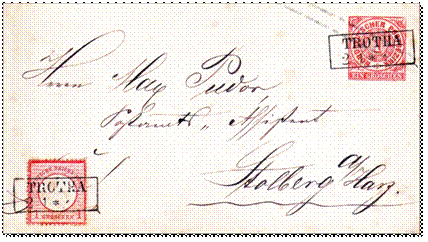 TROTHA
EIN GROSCHEN
Herrn Max Pudor
Postamts-Assistent
Stolberg a/Harz.
TROTHA
1 GROSCHEN 1